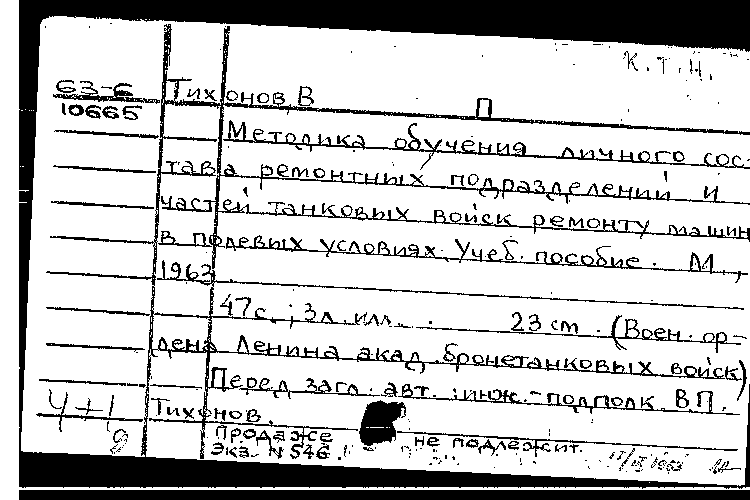 К.Т.Н.
63-6
10665
Тихонов В
П
Методика обучения личного сос-
тава ремонтных подразделений и
частей танковых войск ремонту машин
в полевых условиях. Учеб. пособие. М.,
1963.
47с.; 3л. илл. 23 cm. (Воен. ор-
дена Ленина акад. бронетанковых войск)
Перед загл. авт.: инж.-подполк. В.П.
Тихонов.
Продаже не подлежит.
Экз. N 546.
4+1